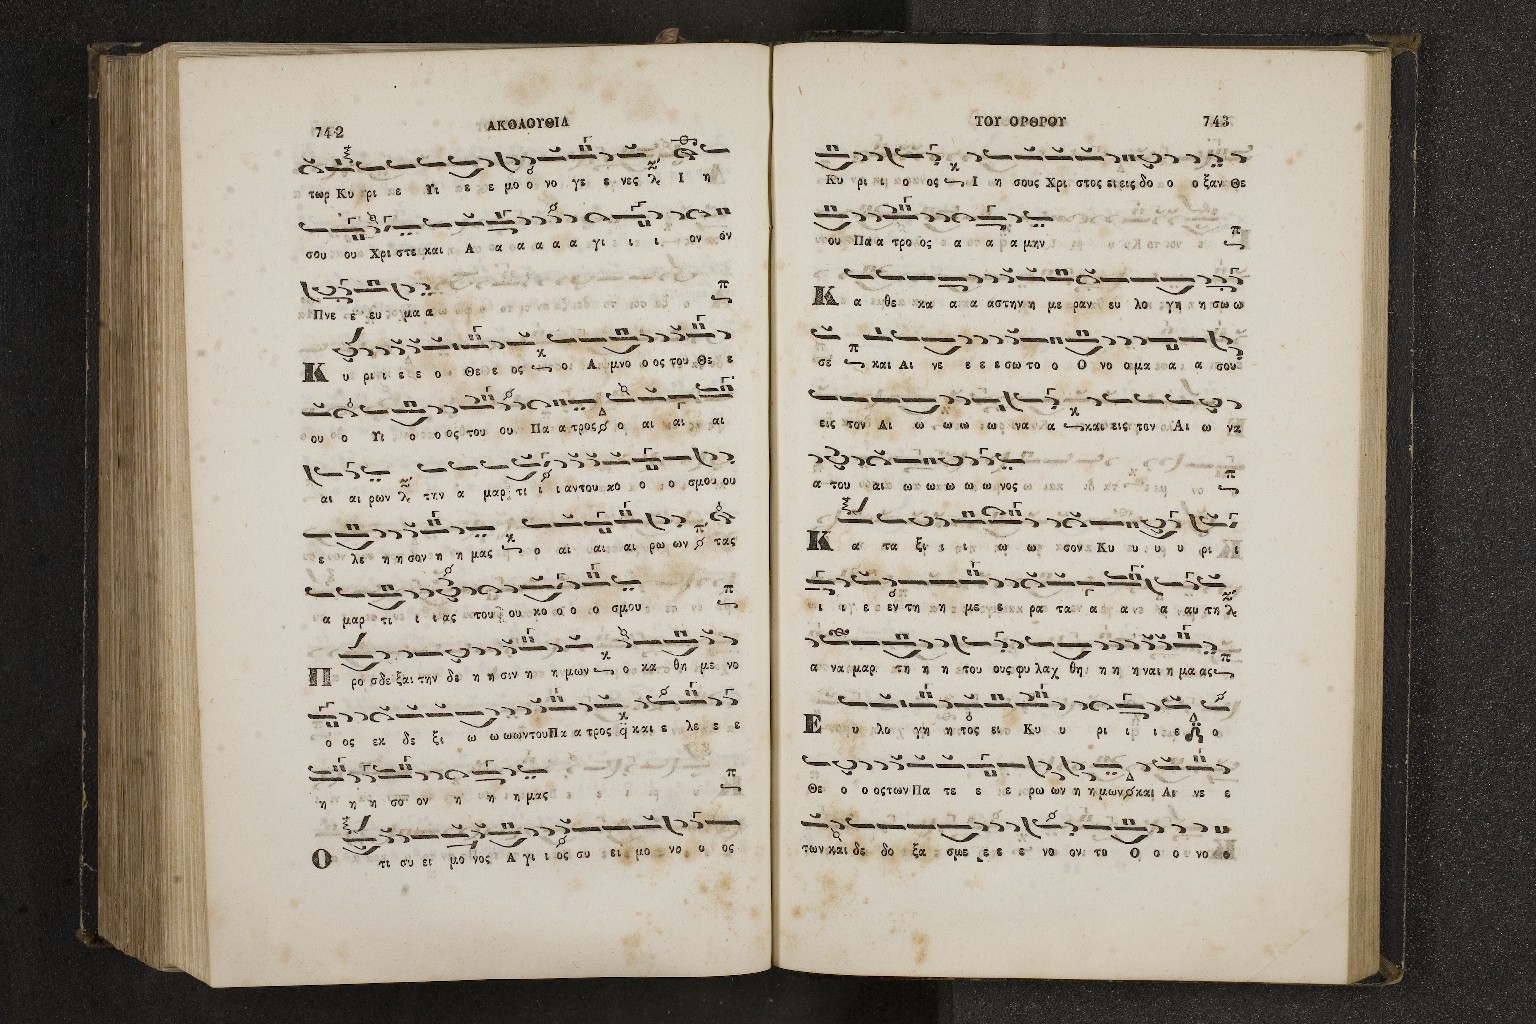 742 ΑΚΟΛΟΥΘΙΑ
τωρ Κυ ρι ε Υι ε ε μο ο νο γε ε νες Ι η
σου ου Χρι στε και Α α α α α α γι ι ι ον όν
Πνε ε ευ μα α
Κ υ ρι ι ε ε ο Θε ε ος ο Α μνο ο ος του Θε ε
ου ο Υι ο ο ος του ου Πα α τρος ο αι αι αι
αι αι ρων την α μαρ τι ι ι αν του κο ο ο ο σμου ου
ε λε η η σον η η μας ο αι αι αι ρω ων τας
α μαρ τι ι ι ας του ου κο ο ο ο σμου
Π ρο σδε ξαι την δε η η σιν η η μων ο κα θη με νο
ο ος εκ δε ξι ω ω ω ων του Πα α τρος και ε λε ε ε
η η η σο ον η η η μας
Ο τι συ ει μο νος Α γι ι ος συ ει μο νο ο ος
ΤΟΥ ΟΡΘΡΟΥ 743
Κυ ρι ι ο ος Ι η σους Χρι στος ει εις δο ο ο ξαν Θε
ου Πα α τρο ος α α α μην
Κ α θε κα α α α στην η με ραν ευ λο γη η σω ω
σε και Αι νε ε ε ε σω το ο Ο νο ο μα α α σου
εις τον Αι ω ω ω ω να α και εις τον Αι ω να
α του αι ω ω ω ω ω νος
Κ α τα ξι ι ι ω ω σον Κυ υ υ υ ρι ι
ι ι ε εν τη η η με ε ρα τα α α αν α αυ τη
α να μαρ τη η η του ους φυ λαχ θη η η η ναι η μα ας
Ε υ λο γη η τος ει Κυ υ ρι ι ι ι ε ο
Θε ο ο ος των Πα τε ε ε ρω ων η η μων και Αι νε ε
των και δε δο ξα σμε ε ε ε νο ον το Ο ο ο νο ο